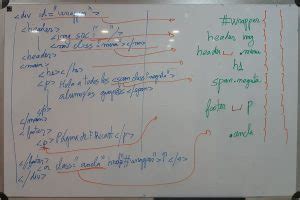 <div id="wrapper">
<header>
<img src=" ">
<nav class="menu"></nav>
<header>
<main>
<h1></h1>
<p> Hola a todos los <span class="negrita">
alumnos </span>
</p>
</main>
<footer>
<p> Página de </p>
</footer>
<a class="ancla" href="#wrapper"> </a>
</div>
#wrapper
header img
header menu
h1
span.negrita
footer p
.ancla